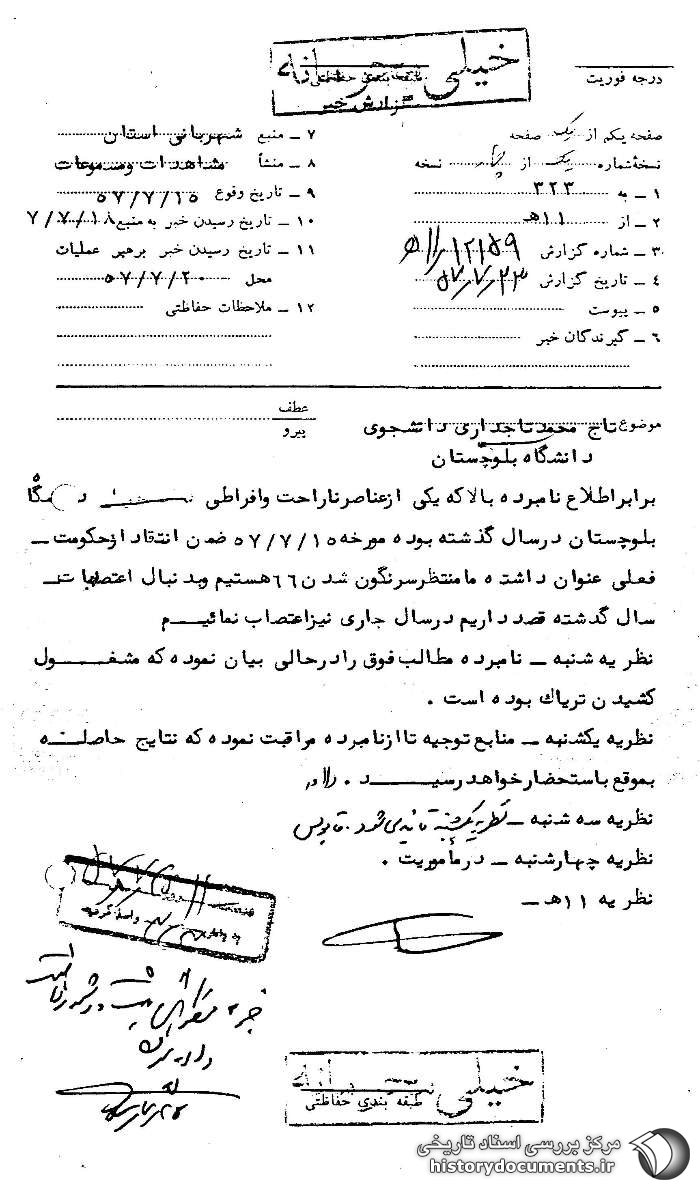 خیلی محرمانه
طبقه بندی حفاظتی
گزارش خبر
درجه فوریت
صفحه یکم از یک صفحه
نسخهٔ شماره یک از نسخه
۱ ـ به ۳۲۳
۲ ـ از ۱۱هـ
۳ ـ شماره گزارش ۱۲۱۵۹/۱۱ه
۴ ـ تاریخ گزارش ۵۷/۷/۲۳
۵ ـ پیوست
۶ ـ گیرندگان خبر
۷ ـ منبع شهربانی استان
۸ ـ منشأ مشاهدات ومسموعات
۹ ـ تاریخ وقوع ۵۷/۷/۱۵
۱۰ ـ تاریخ رسیدن خبر به منبع ۷/۷/۱۸
۱۱ ـ تاریخ رسیدن خبر برهبر عملیات
محل ۵۷/۷/۲۰
۱۲ ـ ملاحظات حفاظتی
عطف
پیرو
موضوع تاج محمد تاجداری دانشجوی
دانشگاه بلوچستان
برابر اطلاع نامبرده بالا که یکی ازعناصرناراحت وافراطی
بلوچستان درسال گذشته بوده مورخه ۵۷/۷/۱۵ ضمن انتقاد ازحکومت ـ
فعلی عنوان داشته مامنتظرسرنگون شدن ۶۶ هستیم وبدنبال اعتصابات
سال گذشته قصد داریم درسال جاری نیزاعتصاب نمائیم
نظریه شنبه ـ نامبرده مطالب فوق رادرحالی بیان نموده که مشغول
کشیدن تریاك بوده است .
نظریه یکشنبه ـ منابع توجیه تاازنامبرده مراقبت نموده که نتایج حاصله
بموقع باستحضارخواهدرسید .
نظریه سه شنبه ـ نظریه یکشنبه تائید می شود .
نظریه چهارشنبه ـ درمأموریت .
نظریه ۱۱هـ ـ
خیلی محرمانه
طبقه بندی حفاظتی
مرکز بررسی اسناد تاریخی
historydocuments.ir